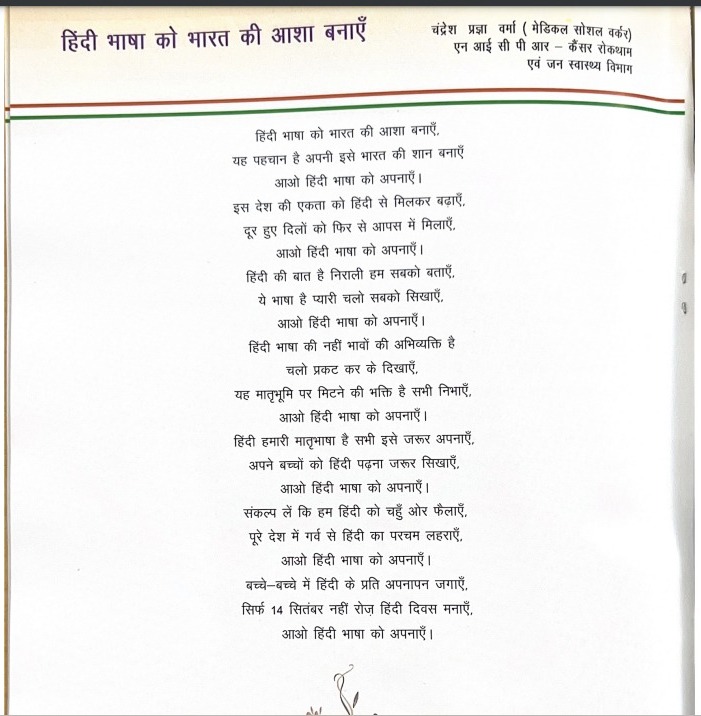 हिंदी भाषा को भारत की आशा बनाएँ
चंद्रेश प्रज्ञा वर्मा ( मेडिकल सोशल वर्कर)
एन आई सी पी आर – कैंसर रोकथाम
एवं जन स्वास्थ्य विभाग
हिंदी भाषा को भारत की आशा बनाएँ,
यह पहचान है अपनी इसे भारत की शान बनाएँ
आओ हिंदी भाषा को अपनाएँ।
इस देश की एकता को हिंदी से मिलकर बढ़ाएँ,
दूर हुए दिलों को फिर से आपस में मिलाएँ,
आओ हिंदी भाषा को अपनाएँ।
हिंदी की बात है निराली हम सबको बताएँ,
ये भाषा है प्यारी चलो सबको सिखाएँ,
आओ हिंदी भाषा को अपनाएँ।
हिंदी भाषा की नहीं भावों की अभिव्यक्ति है
चलो प्रकट कर के दिखाएँ,
यह मातृभूमि पर मिटने की भक्ति है सभी निभाएँ,
आओ हिंदी भाषा को अपनाएँ।
हिंदी हमारी मातृभाषा है सभी इसे जरूर अपनाएँ,
अपने बच्चों को हिंदी पढ़ना जरूर सिखाएँ,
आओ हिंदी भाषा को अपनाएँ।
संकल्प लें कि हम हिंदी को चहुँ ओर फैलाएँ,
पूरे देश में गर्व से हिंदी का परचम लहराएँ,
आओ हिंदी भाषा को अपनाएँ।
बच्चे–बच्चे में हिंदी के प्रति अपनापन जगाएँ,
सिर्फ 14 सितंबर नहीं रोज़ हिंदी दिवस मनाएँ,
आओ हिंदी भाषा को अपनाएँ।